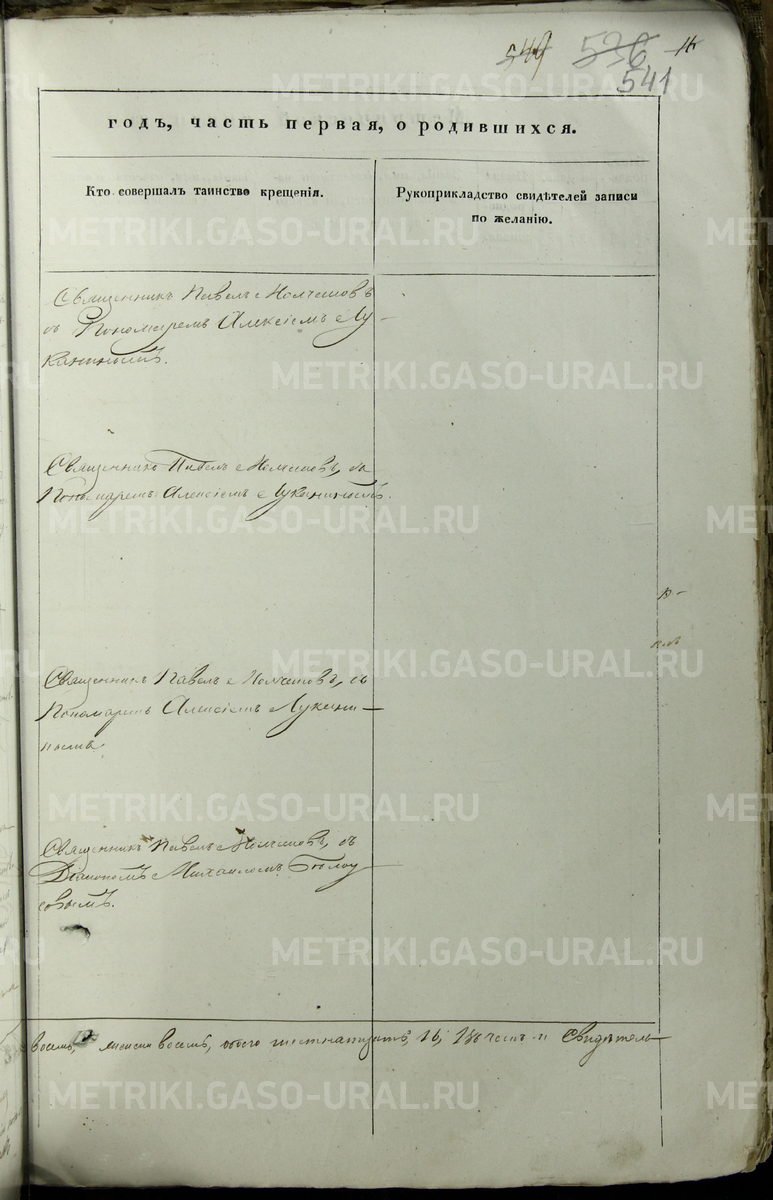 549 536
541
годъ, часть первая, о родившихся.
Кто совершалъ таинство крещенія.
Рукоприкладство свидѣтелей записи
по желанію.
Священникъ Павелъ
съ Пономаремъ Алексіемъ Лу-
канинымъ.
Священникъ Павелъ съ
Пономаремъ Алексіемъ Луканинымъ.
Священникъ Павелъ съ
Пономаремъ Алексіемъ Лукани-
нымъ
Священникъ Павелъ съ
Діакономъ Михаиломъ Бѣлоу
совымъ.
восемь, женска восемь, обоего шестнатцать, 16, Свидѣтель-
METRIKI.GASO-URAL.RU